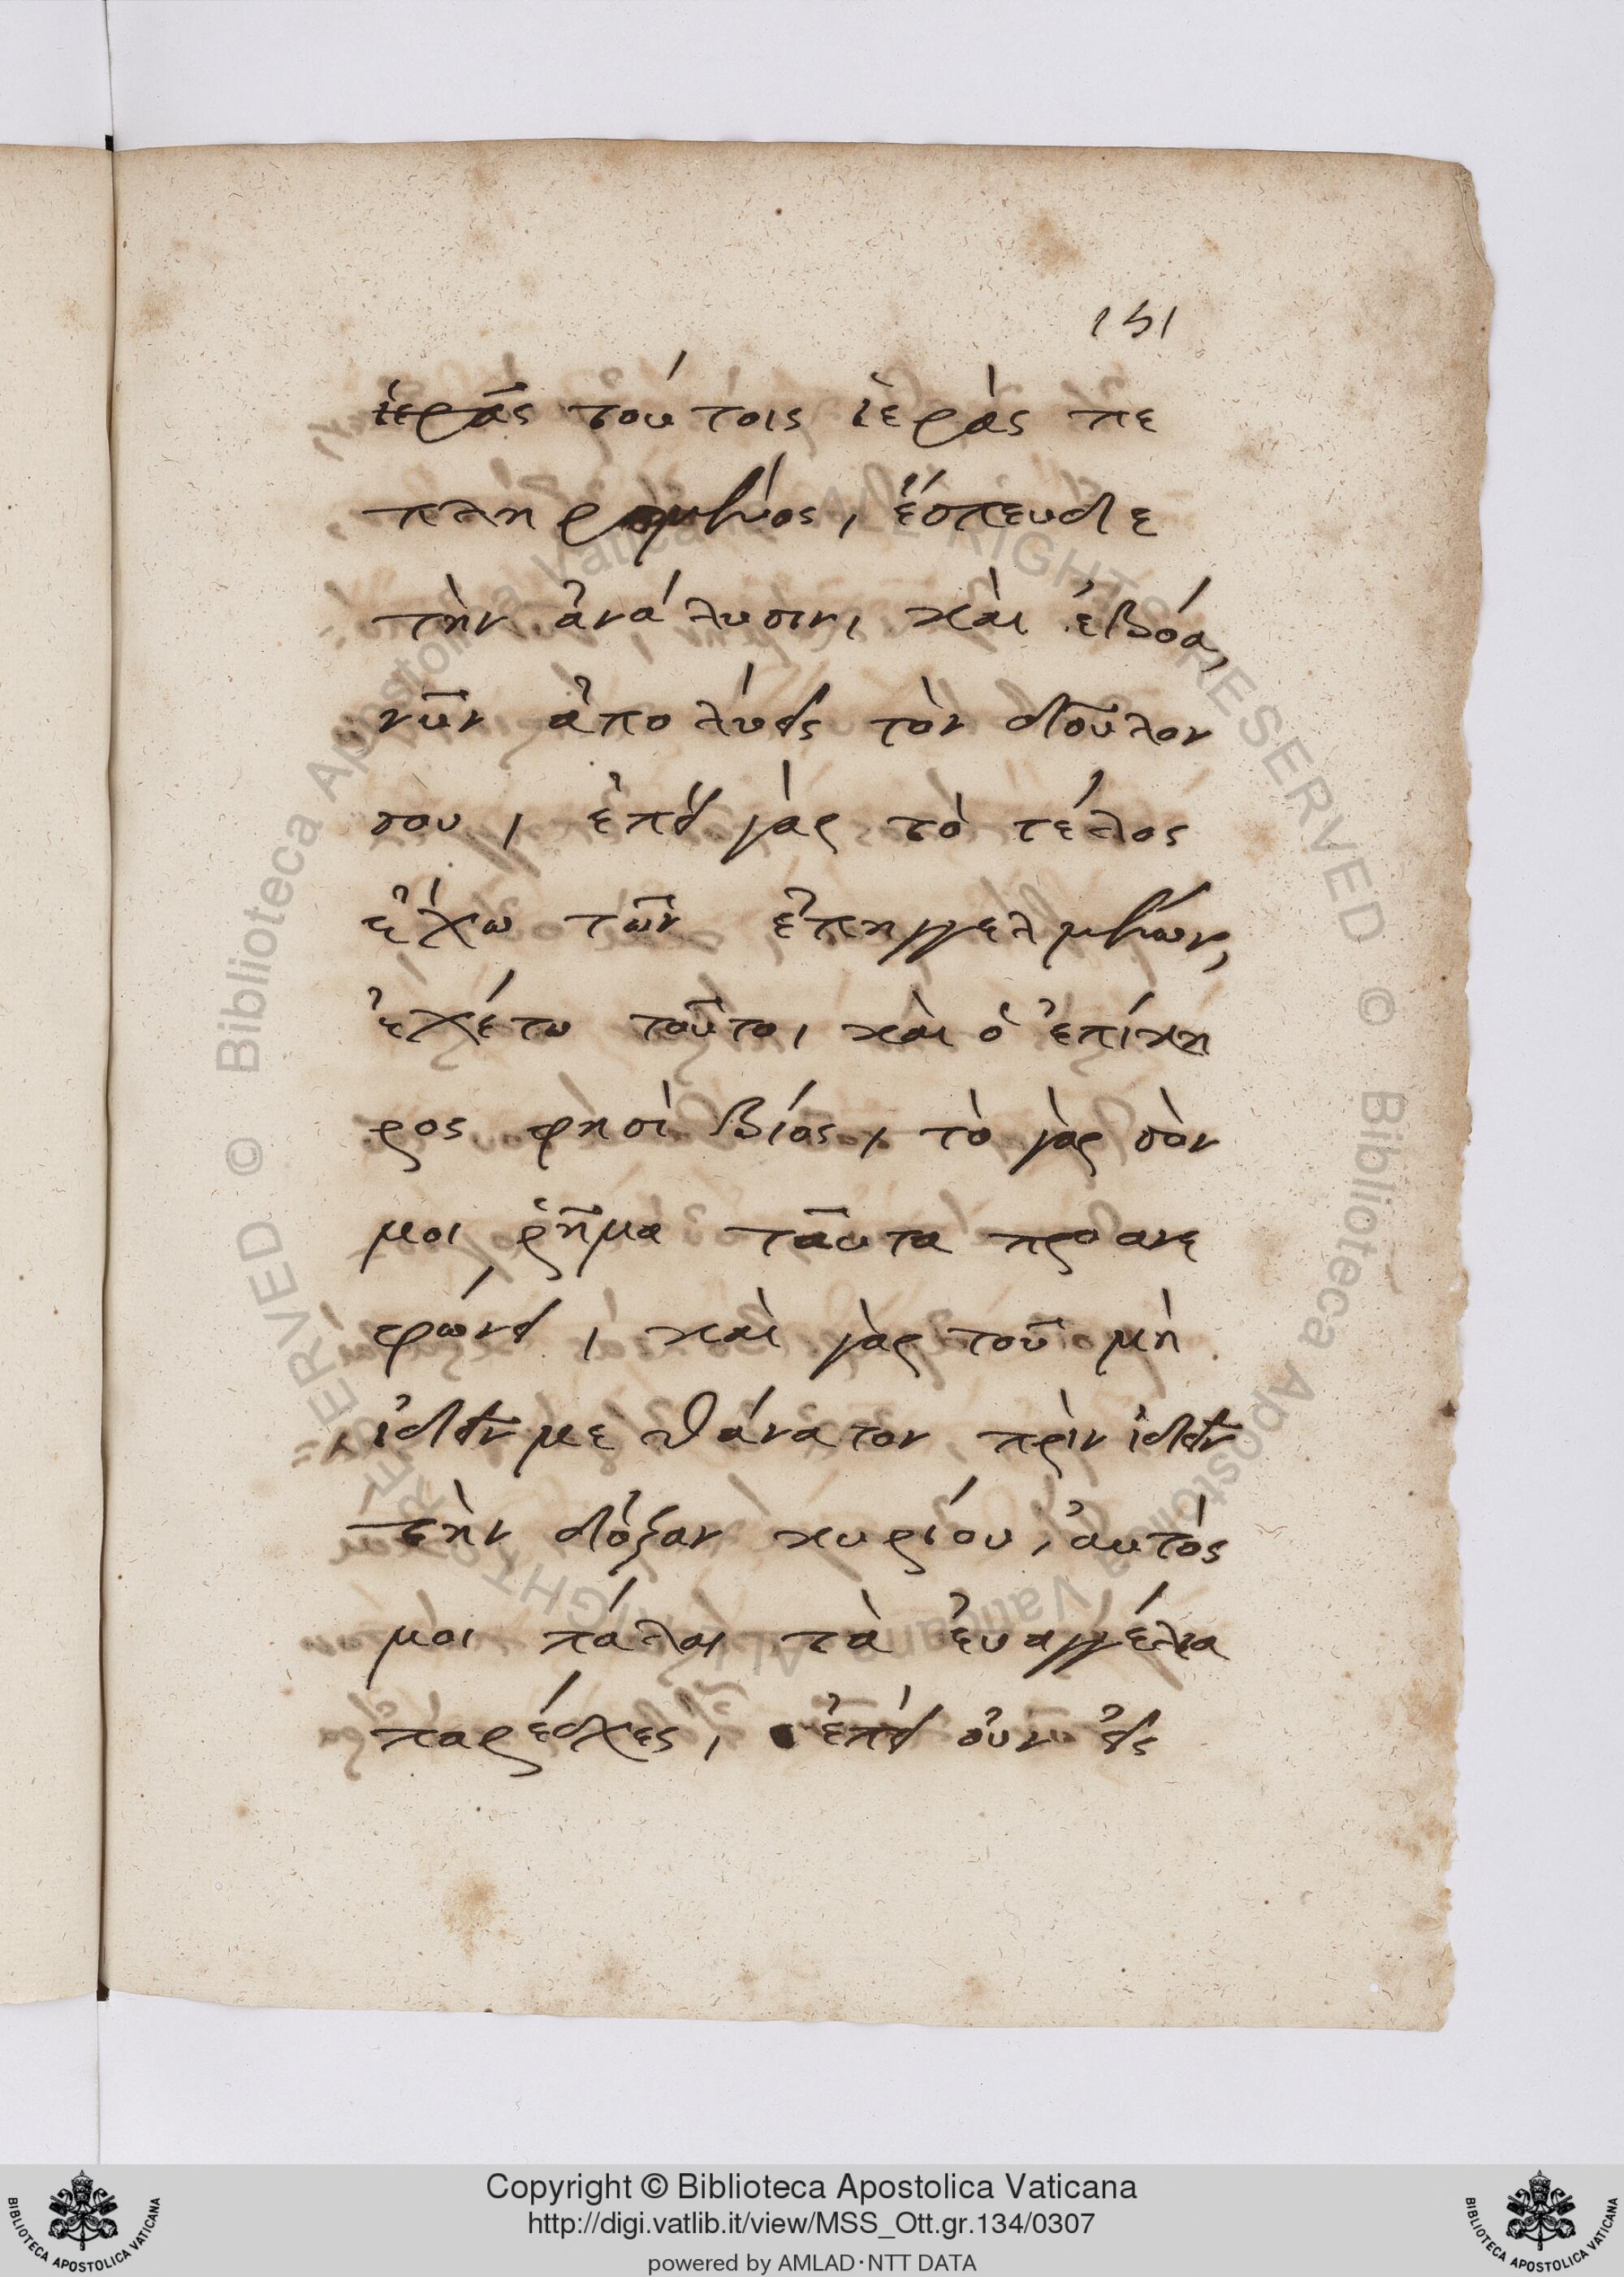 151
ἱερᾶς τούτοις ἱερὰς πε
πληρωμένος, ἔσπευδε
τὴν ἀνάλυσιν, καὶ ἐβόα,
νῦν ἀπολύεις τὸν δοῦλον
σου, ἐπεὶ γὰρ τὸ τέλος
ἔχω τῶν ἐπηγγελμένων,
ἐχέτω τοῦτο, καὶ ὁ ἐπίκη
ρος φησὶ βίος, τὸ γὰρ σὸν
μοι ῥῆμα ταῦτα προανε
φώνει, καὶ γὰρ τοῦ μὴ
ἰδεῖν με θάνατον πρὶν ἰδεῖν
τὴν δόξαν κυρίου, αὐτός
μοι πάλαι τὰ ἐυαγγέλια
παρέσχες, ἐπεὶ οὖν εἰς
Copyright © Biblioteca Apostolica Vaticana
http://digi.vatlib.it/view/MSS_Ott.gr.134/0307
powered by AMLAD·NTT DATA